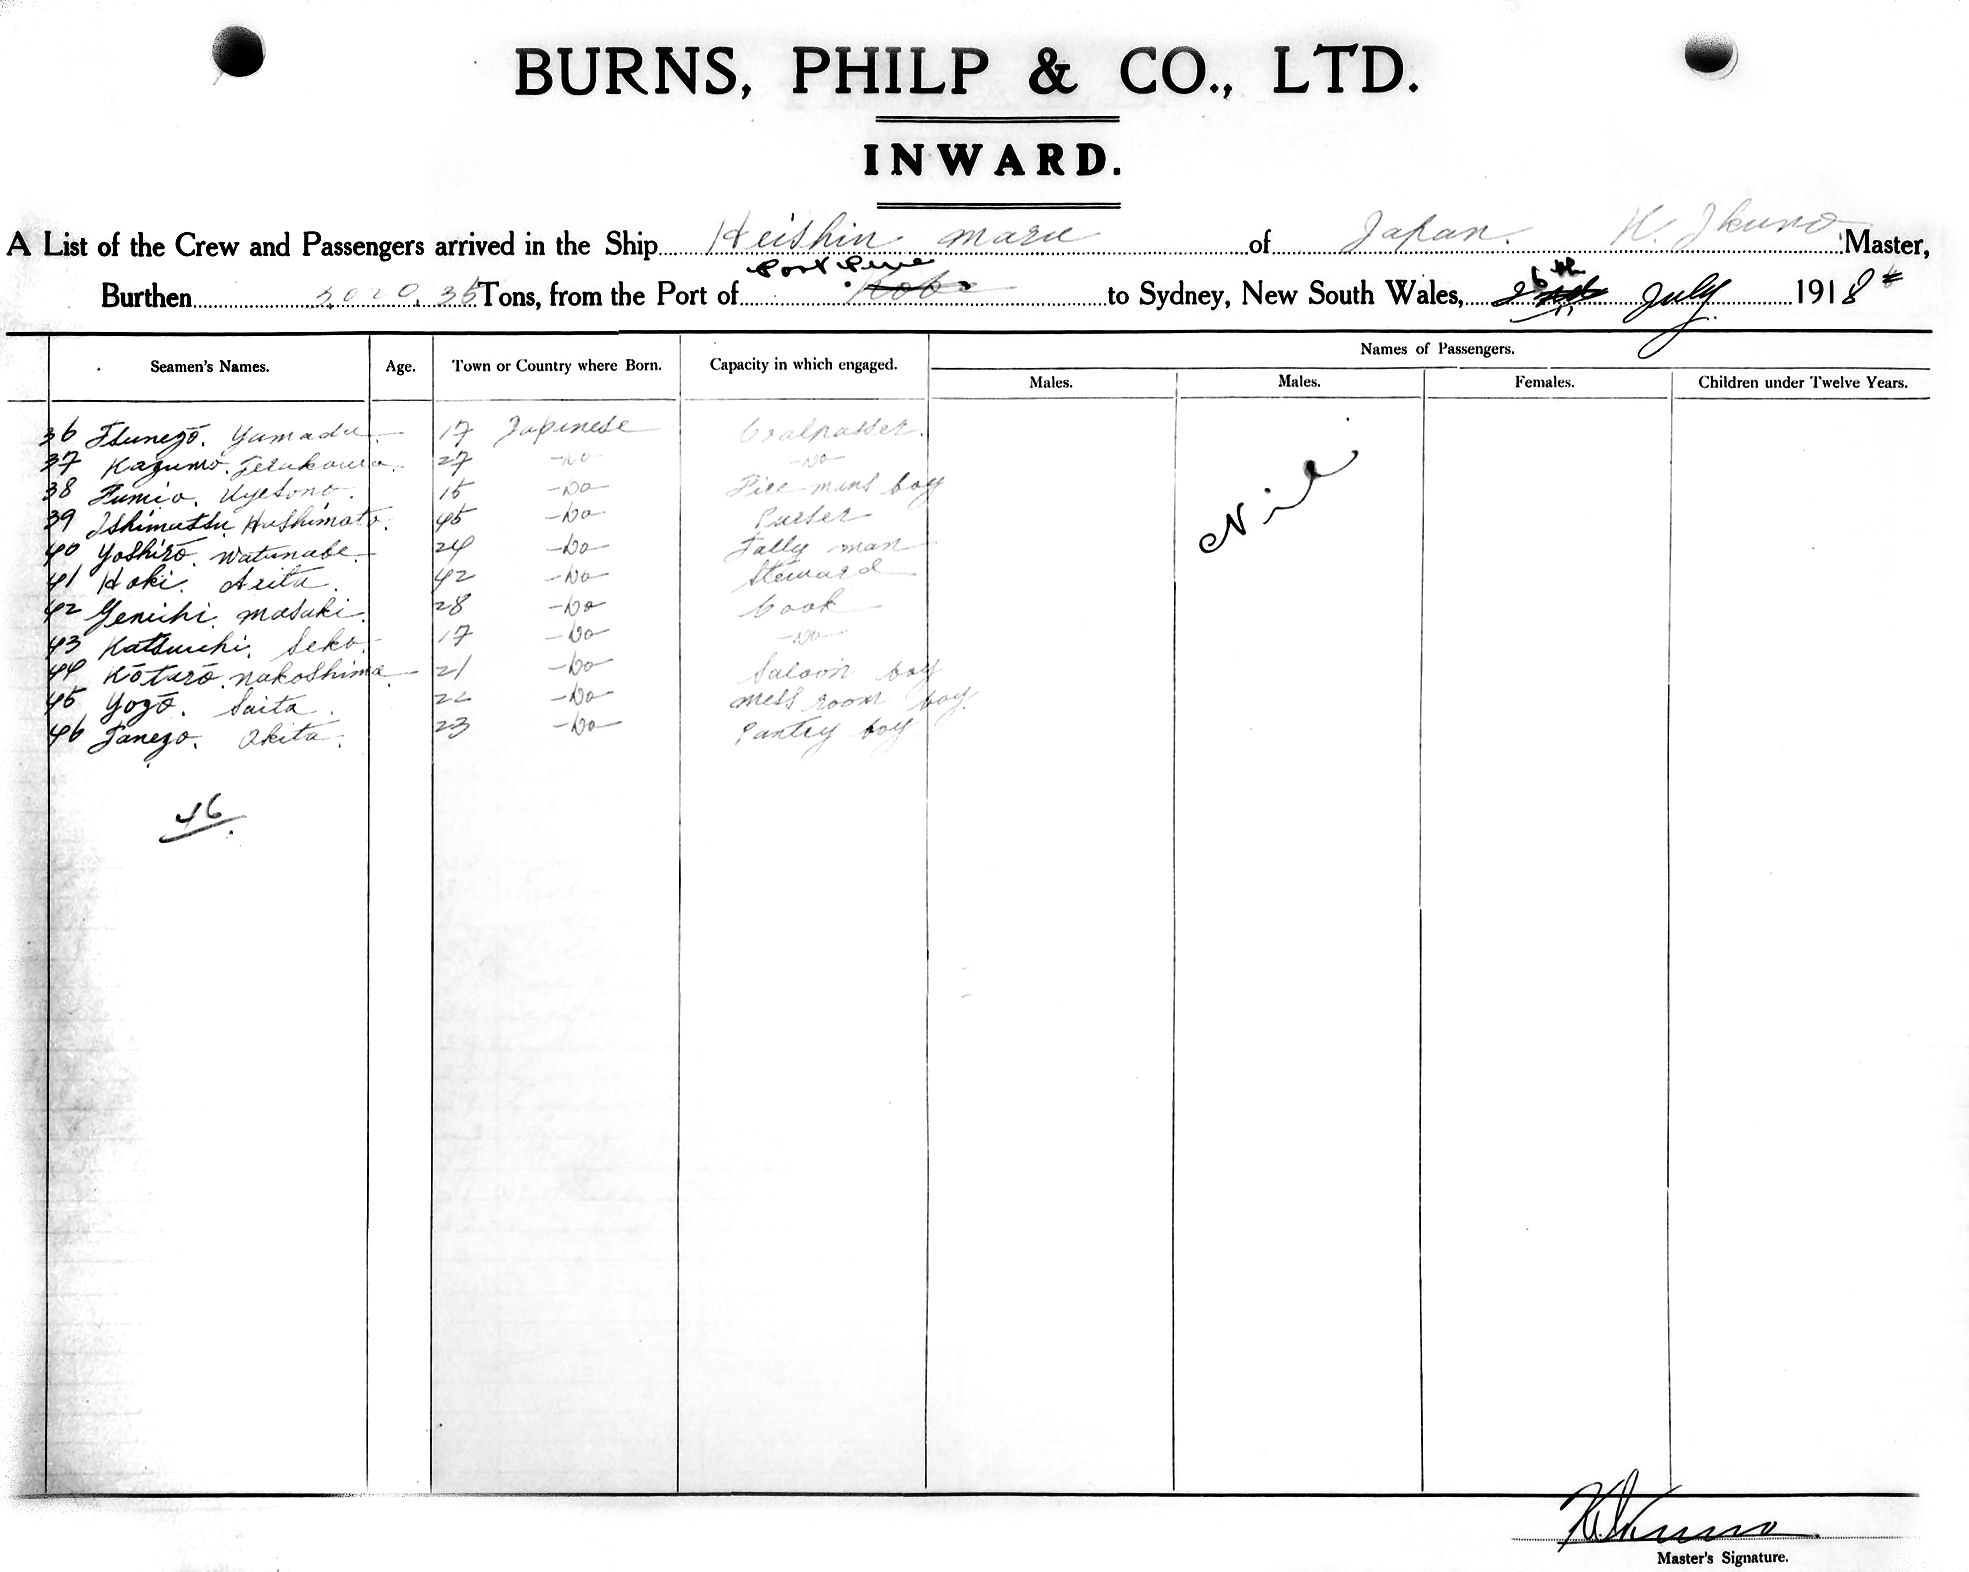 BURNS, PHILP & CO., LTD.
INWARD.
A List of the Crew and Passengers arrived in the Ship Heishin Maru of Japan. K. Ikuno Master,
Port Pirie
Burthen 3020.35 Tons, from the Port of Kobe to Sydney, New South Wales, 6th July 1918
Seamen's Names. Age. Town or Country where Born. Capacity in which engaged. Names of Passengers.
Males. Males. Females. Children under Twelve Years.
36 Tsunezō. Yamada 17 Japanese Coalpasser.
37 Kazumo. Terakawa. 27 -Do- -Do-
38 Fumio. Uyesono. 15 -Do- Fire mens boy
39 Ishimatsu Hashimato. 45 -Do- Purser
40 Yoshirō. Watanabe 24 -Do- Tally man
41 Hoki. Arita. 42 -Do- Steward
42 Genichi. Masaki. 28 -Do- Cook
43 Katsuichi. Seko. 17 -Do- -Do-
44 Kōtarō. Nakoshima 21 -Do- Saloon boy
45 Yozō. Saita. 22 -Do- Mess room boy.
46 Tanezo. Akita. 23 -Do- Pantry boy
Nil
46
K. Ikuno
Master's Signature.